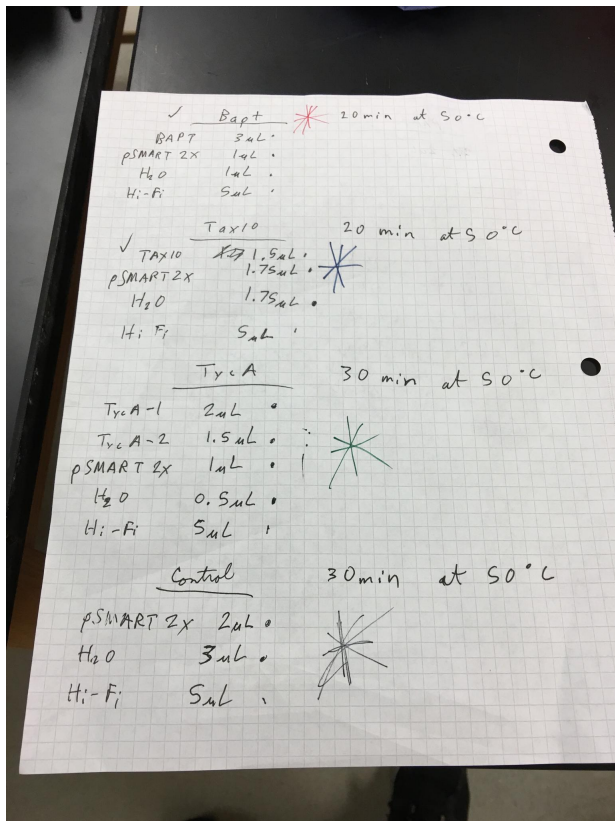 ✓ Bapt 20min at 50°C
BAPT 3µL •
pSMART 2X 1µL •
H2O 1µL •
Hi-Fi 5µL •
Tax10 20 min at 50°C
✓ TAX10 1.5µL •
pSMART2X 1.75µL •
H2O 1.75µL •
Hi Fi 5µL
TycA 30 min at 50°C
TycA-1 2µL •
TycA-2 1.5µL •
pSMART 2X 1µL •
H2O 0.5µL •
Hi-Fi 5µL
Control 30min at 50°C
pSMART 2X 2µL •
H2O 3µL •
Hi-Fi 5µL